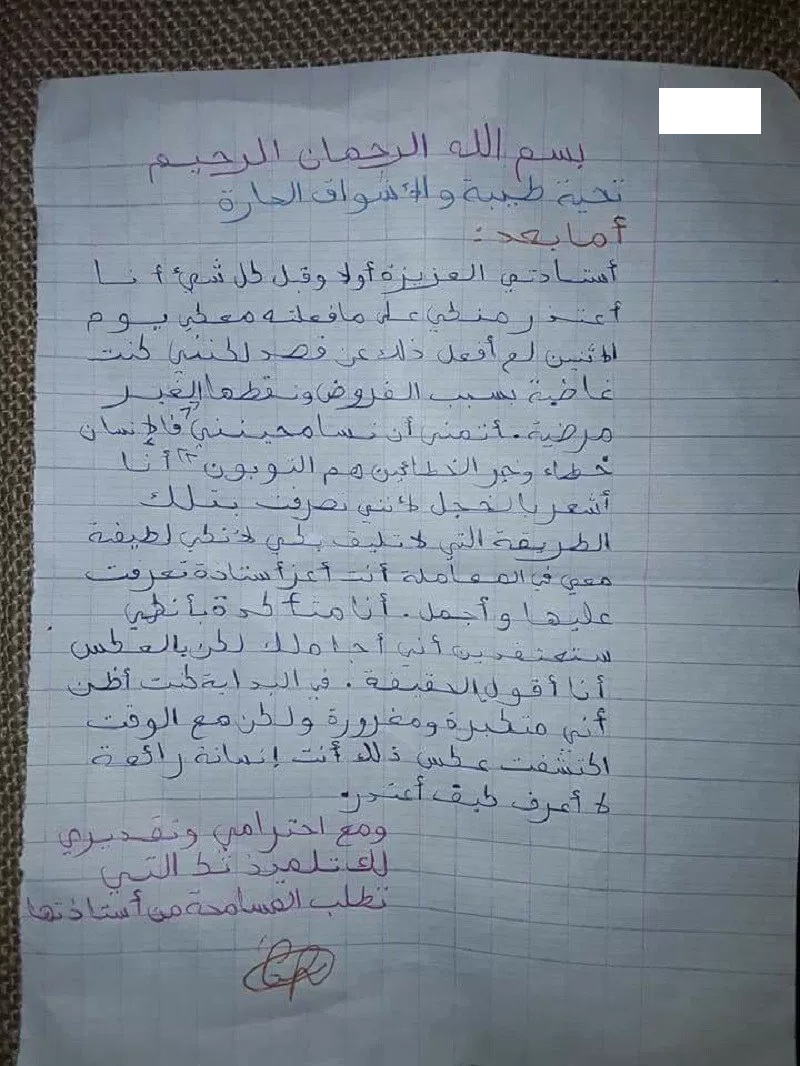 بسم الله الرحمان الرحيم
تحية طيبة والأشواق الحارة
أما بعد:
أستادتي العزيزة أولا وقبل كل شيئ أنا
أعتذر منكي على مافعلته معكي يوم
الاثنين لم أفعل ذلك عن قصد لكنني كنت
غاضبة بسبب الفروض ونقطها الغير
مرضية. أتمنى أن تسامحينني "فالإنسان
خطاء وخير الخطائين هم التوبون" أنا
أشعر بالخجل لأنني تصرفت بتلك
الطريقة التي لا تليق بكي لأنكي لطيفة
معي في المعاملة أنت أعز أستادة تعرفت
عليها وأجمل. أنا متأكدة بأنكي
ستعتقدين أني أجاملك لكن بالعكس
أنا أقول الحقيقة. في البداية كنت أظن
أني متكبرة ومغرورة ولكن مع الوقت
اكتشفت عكس ذلك أنت إنسانة رائعة
لا أعرف كيف أعتدر.
ومع احترامي وتقديري
لك تلميذتك التي
تطلب المسامحة من أستاذتها